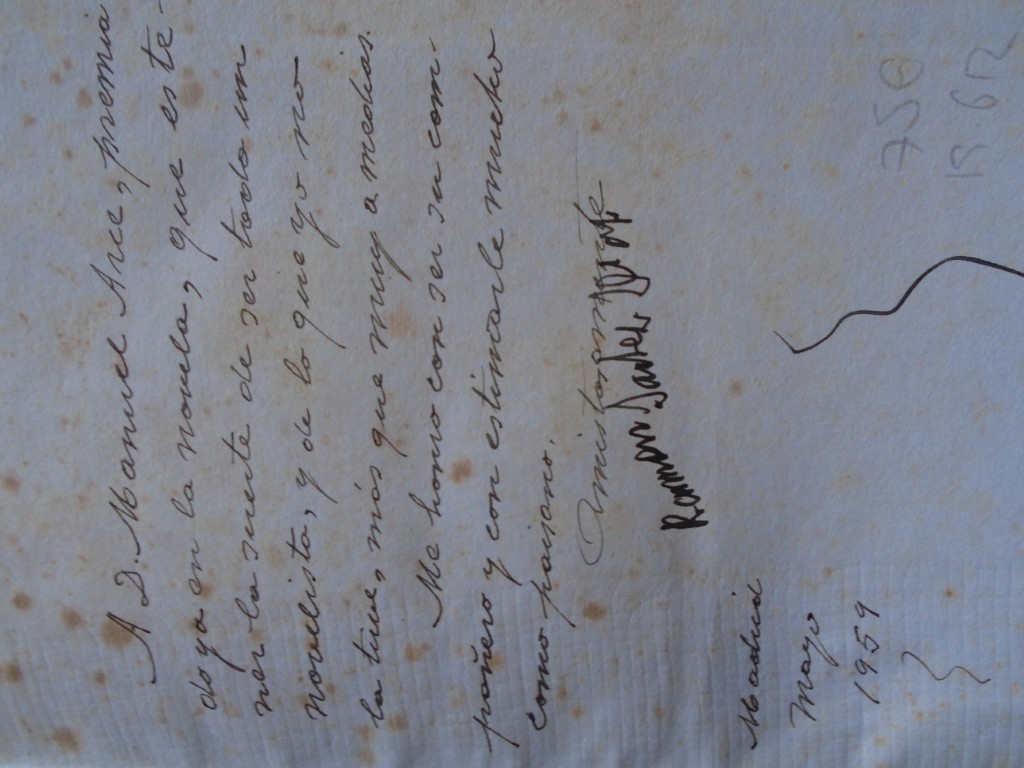 A D. Manuel Arce, premia
do ya en la novela, que es te-
ner la suerte de ser todo un
novelista, y de lo que yo no
la tuve, más que muy a medias.
Me honro con ser su com-
pañero y con estimarle mucho
como paisano.
Amistosamente
Madrid
Mayo
1959
750